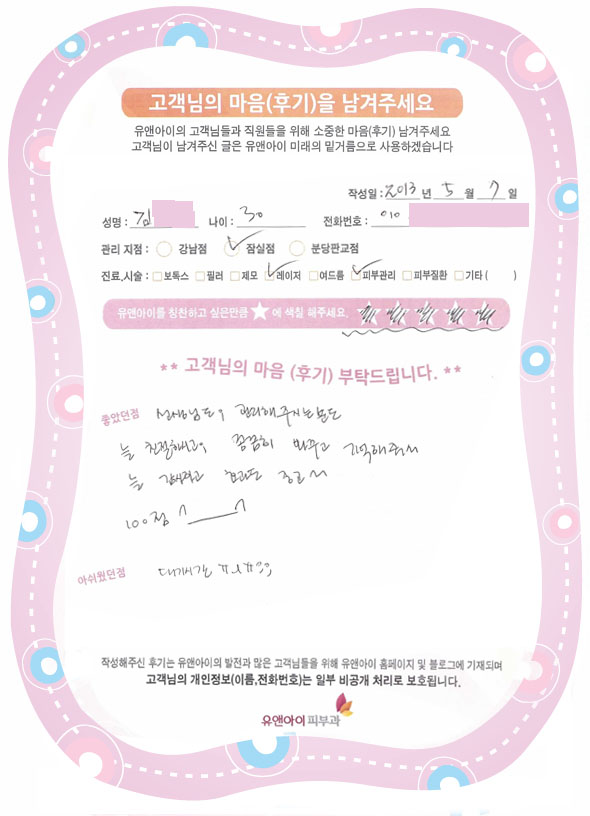 고객님의 마음(후기)을 남겨주세요
유앤아이의 고객님들과 직원들을 위해 소중한 마음(후기) 남겨주세요
고객님이 남겨주신 글은 유앤아이 미래의 밑거름으로 사용하겠습니다
작성일 : 2013 년 5 월 7 일
성명 : 김 나이 : 30 전화번호 : 010
관리 지점 : 강남점 잠실점 분당판교점
진료,시술 : 보톡스 필러 제모 레이저 여드름 피부관리 피부질환 기타 ( )
유앤아이를 칭찬하고 싶은만큼 ★ 에 색칠 해주세요.
** 고객님의 마음 (후기) 부탁드립니다. **
좋았던점 선생님도, 관리해주시는분도
늘 친절하시고, 꼼꼼히 봐주고 기억해줘서
늘 감사하고 효과도 좋고~
100점 ^____^
아쉬웠던점 대기시간 ㅠㅠ;;
작성해주신 후기는 유앤아이의 발전과 많은 고객님들을 위해 유앤아이 홈페이지 및 블로그에 기재되며
고객님의 개인정보(이름,전화번호)는 일부 비공개 처리로 보호됩니다.
유앤아이피부과